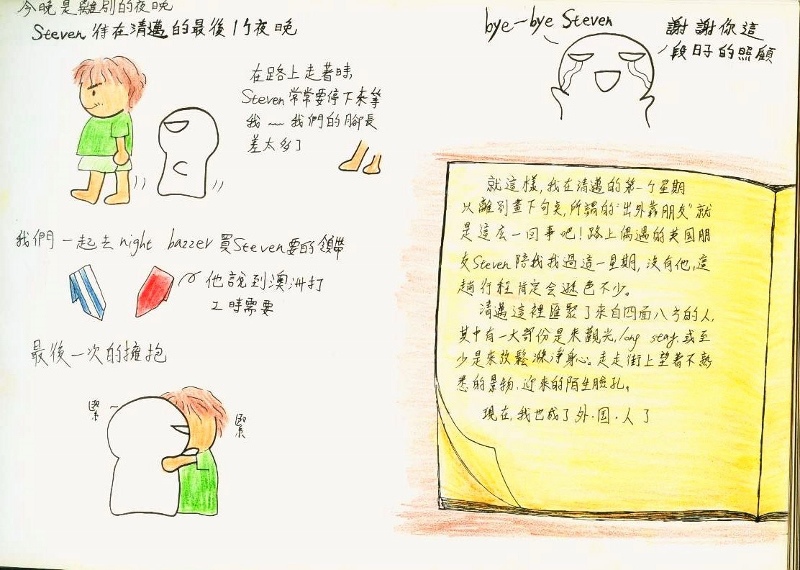 今晚是離別的夜晚
Steven 待在清邁的最後1个夜晚
在路上走著時
Steven常常要停下來等
我 ~ 我們的腳長
差太多了
我們一起去night bazzer 買Steven要的領帶
他說到澳洲打
工時需要
最後一次的擁抱
緊
緊
bye-bye Steven
謝謝你這
段日子的照顧
就這樣,我在清邁的第一个星期
以離別畫下句矣,所謂的"出外靠朋友"就
是這么一回事吧!路上偶遇的英国朋
友Steven陪我我過這一星期,沒有他,這
趟行程肯定会遜色不少。
清邁這裡匯聚了來自四面八方的人,
其中有一大部份是來觀光,long stay,或至
少是來放鬆滌淨身心。走走街上望著不熟
悉的景物,近來的陌生臉孔。
現在,我也成了外.国.人了